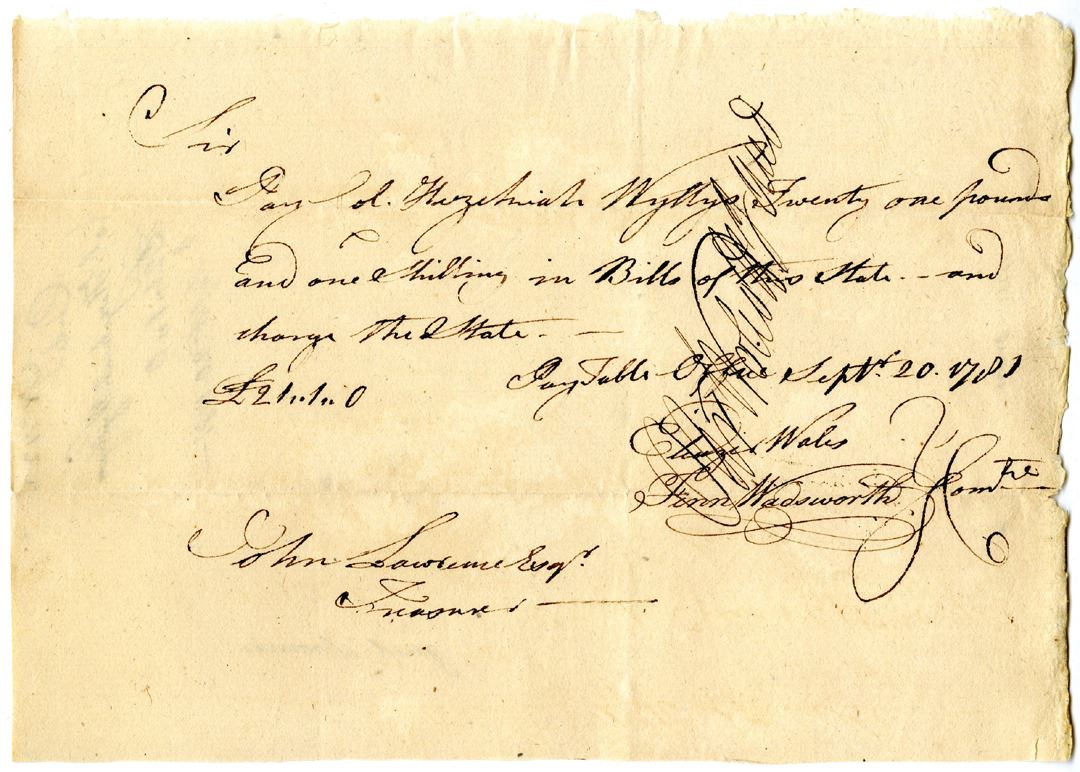 Sir
Pay Col. Hezekiah Wyllys Twenty one pounds
and one Shilling in Bills of this State. - and
charge the State. -
£21.1.0
Pay Table Office Septr. 20. 1781
Eleazer Wales
Fenn Wadsworth
Comtee
John Lawrence Esqr.
Treasurer